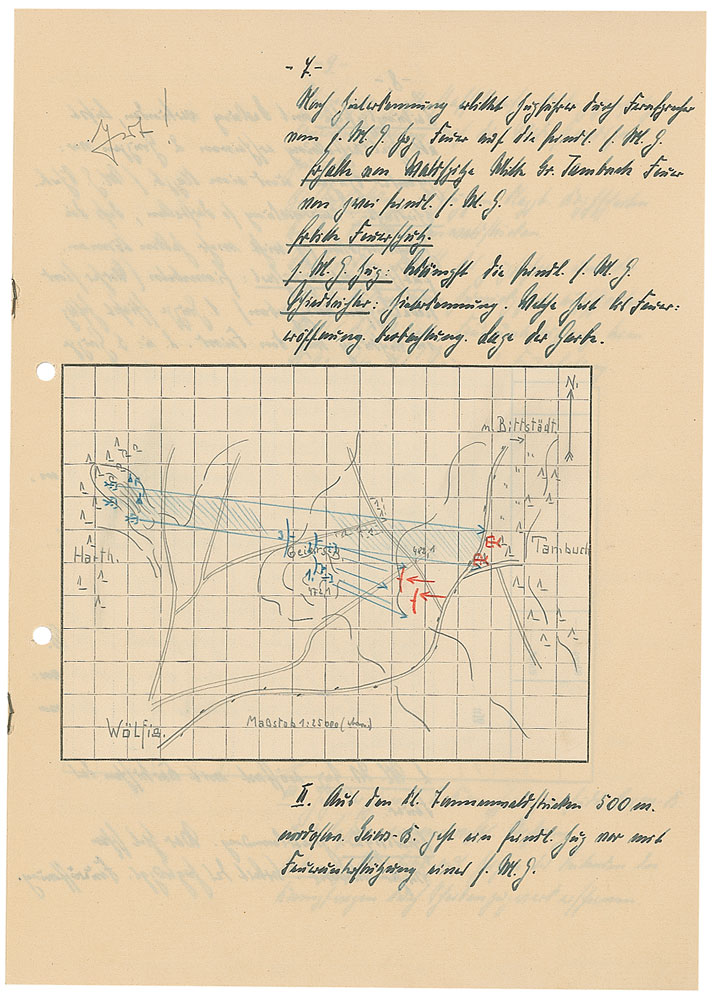 - 7. -
Gut!
Nach Zielerkennung erbittet Zugführer durch Fernsprecher
vom s. M. G. Zug Feuer auf die feindl. s. M. G.
Erhalte von Waldspitze Mitte Gr. Tambuch Feuer
von zwei feindl. s. M. G.
Erbitte Feuerschutz.
s. M. G. Zug: bekämpft die feindl. s. M. G.
Schiedsrichter: Zielerkennung. Welche Zeit bis Feuer:
eröffnung. Beobachtung. Lage der Garbe.
N.
n. Bittstädt.
Harth.
Geiers-B.
Tambuch
Wölfis.
Maßstab 1:25000
II. Aus den kl. Tannenwaldstücken 500 m.
nordostw. Geiers-B. geht ein feindl. Zug vor mit
Feuerunterstützung eines s. M. G.